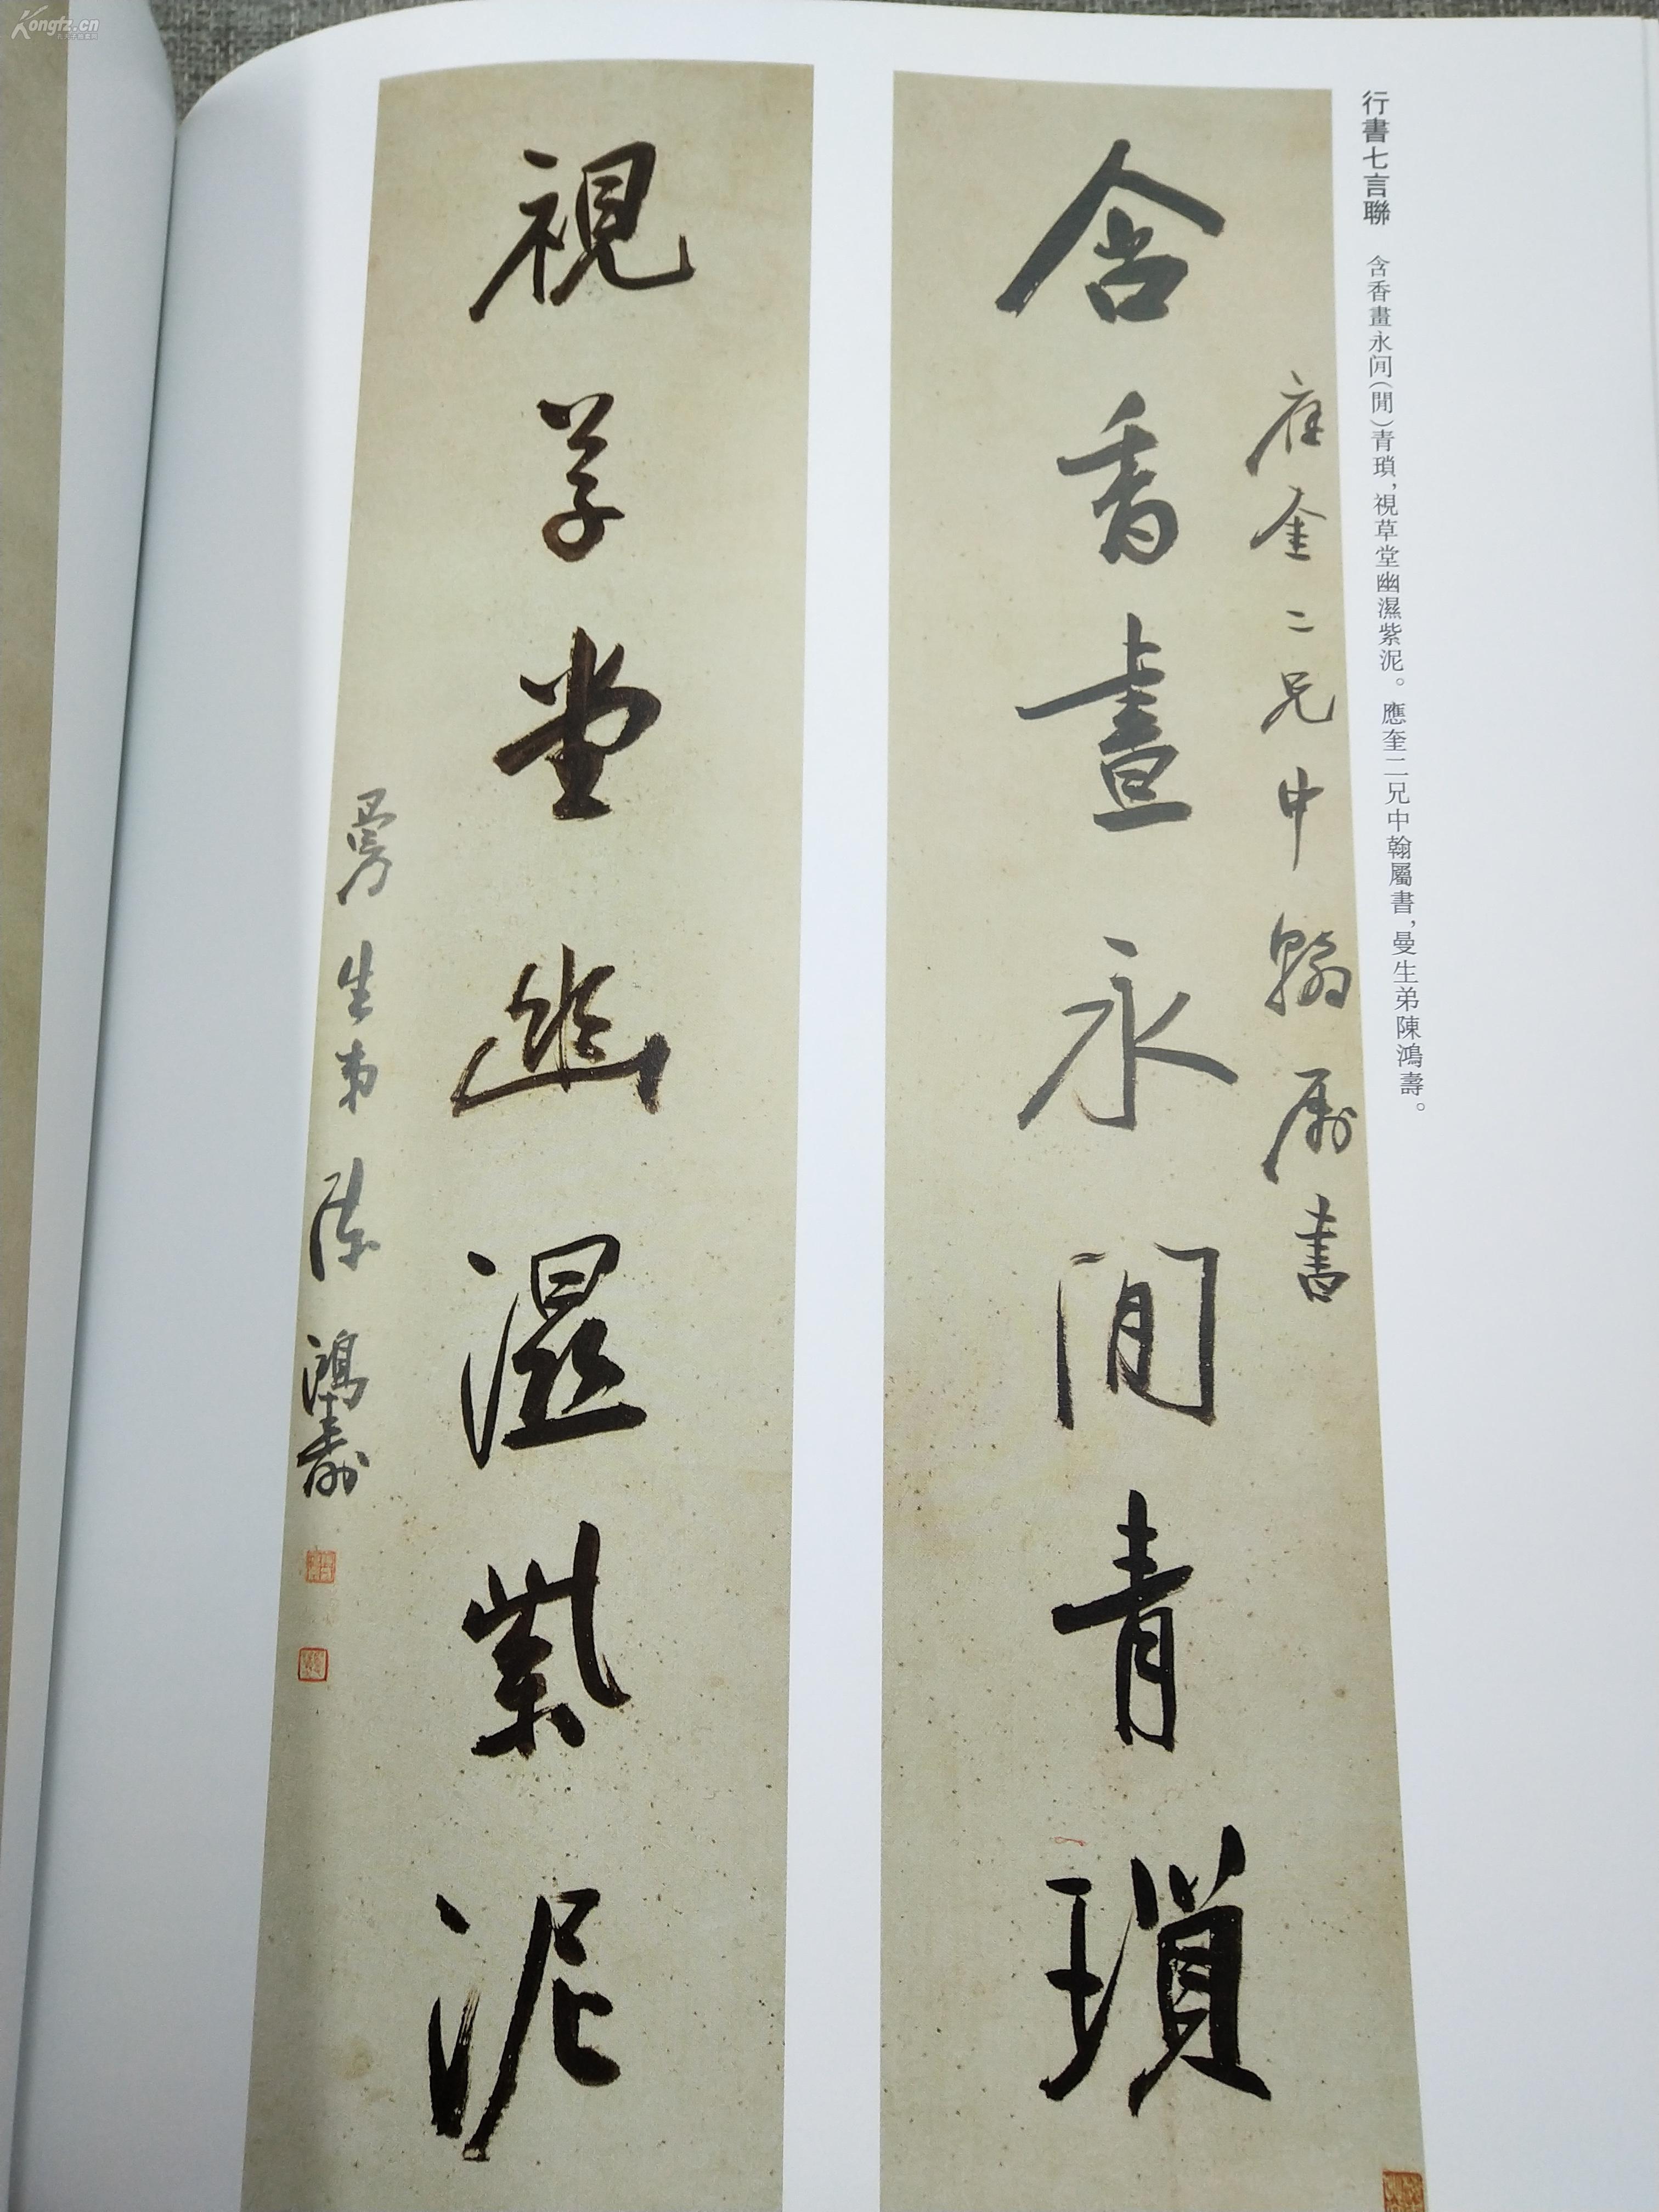 Kongfz.cn
行書七言聯 含香畫永闲(閒)青瑣，視草堂幽濕紫泥。應奎二兄中翰屬書，曼生弟陳鴻壽。
應奎二兄中翰属書
含香晝永閒青瑣
視草堂幽濕紫泥
曼生弟陳鴻壽